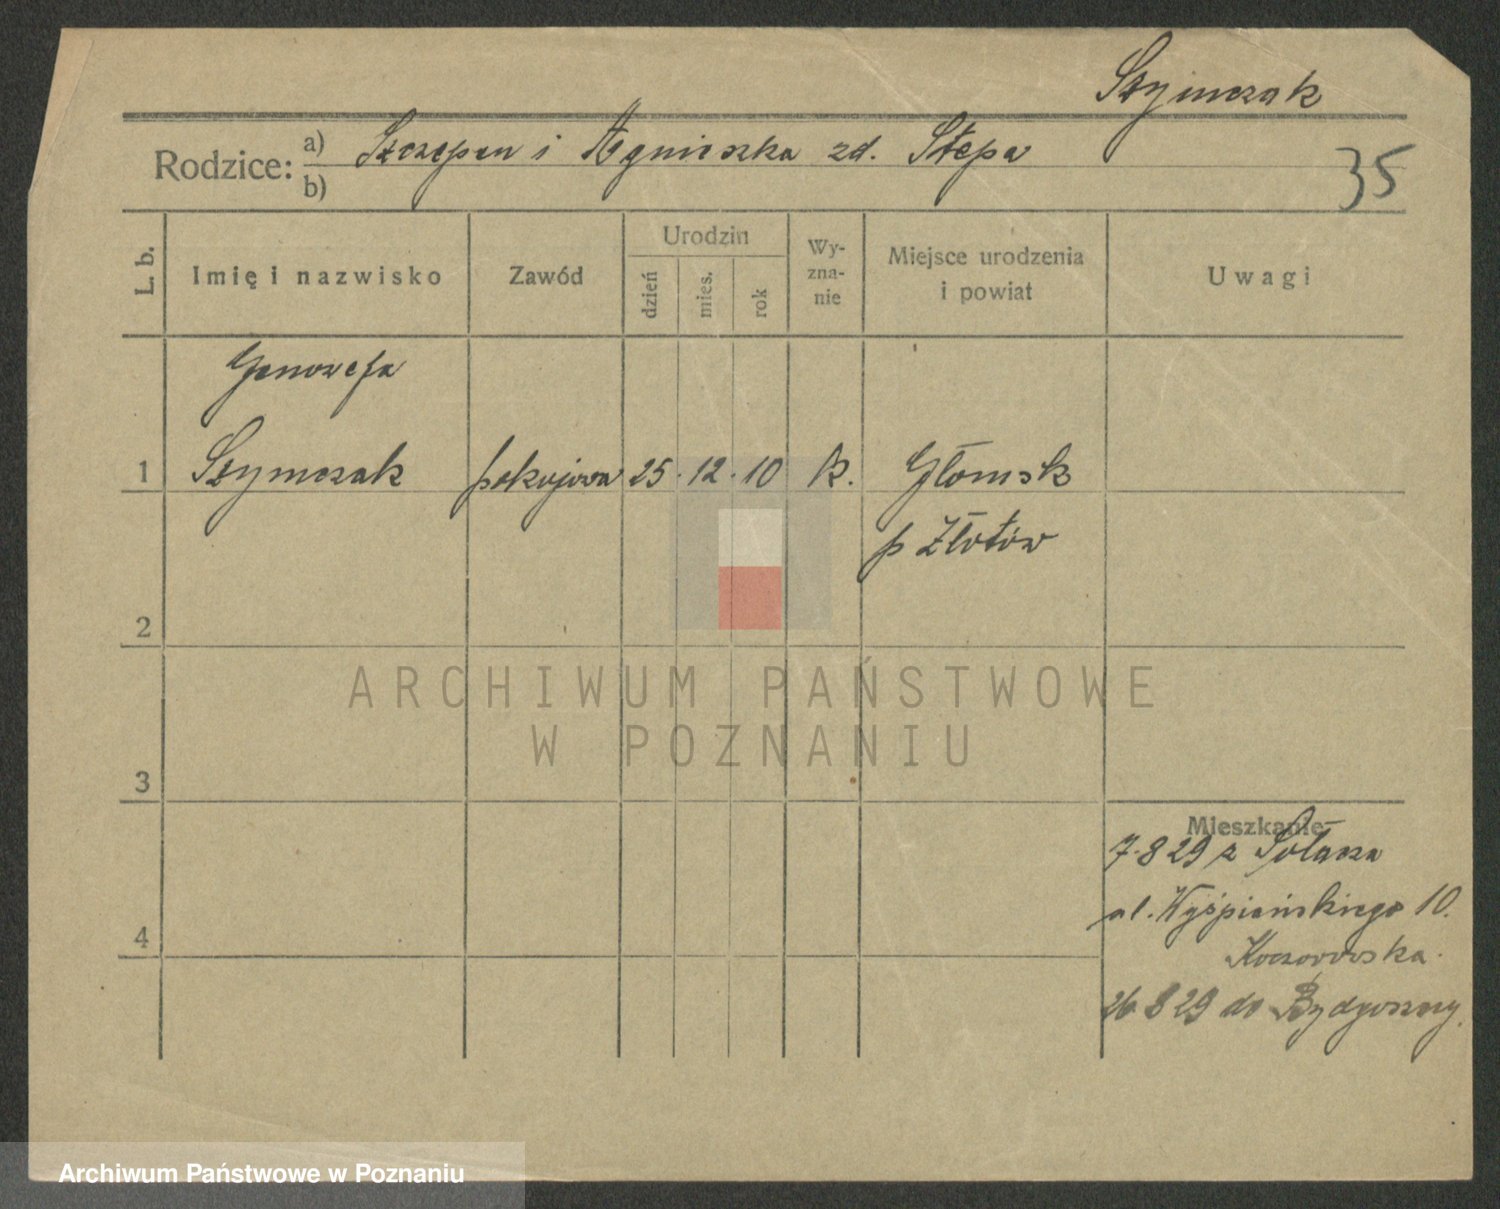 Szymczak
Rodzice: a) Szczepan i Agnieszka zd. Stępa
b)
35
L. b.
Imię i nazwisko
Zawód
Urodzin
dzień
mies.
rok
Wy-
zna-
nie
Miejsce urodzenia
i powiat
Uwagi
Genowefa
1 Szymczak pokojowa 25. 12. 10 k. Głomsk
p Złotów
2
3
Mieszkanie
7.8 29 z Sołacza
4 ul. Wyśpiańskiego 10.
Koczorowska.
26 8 29 do Bydgoszczy.
ARCHIWUM PAŃSTWOWE
W POZNANIU
Archiwum Państwowe w Poznaniu